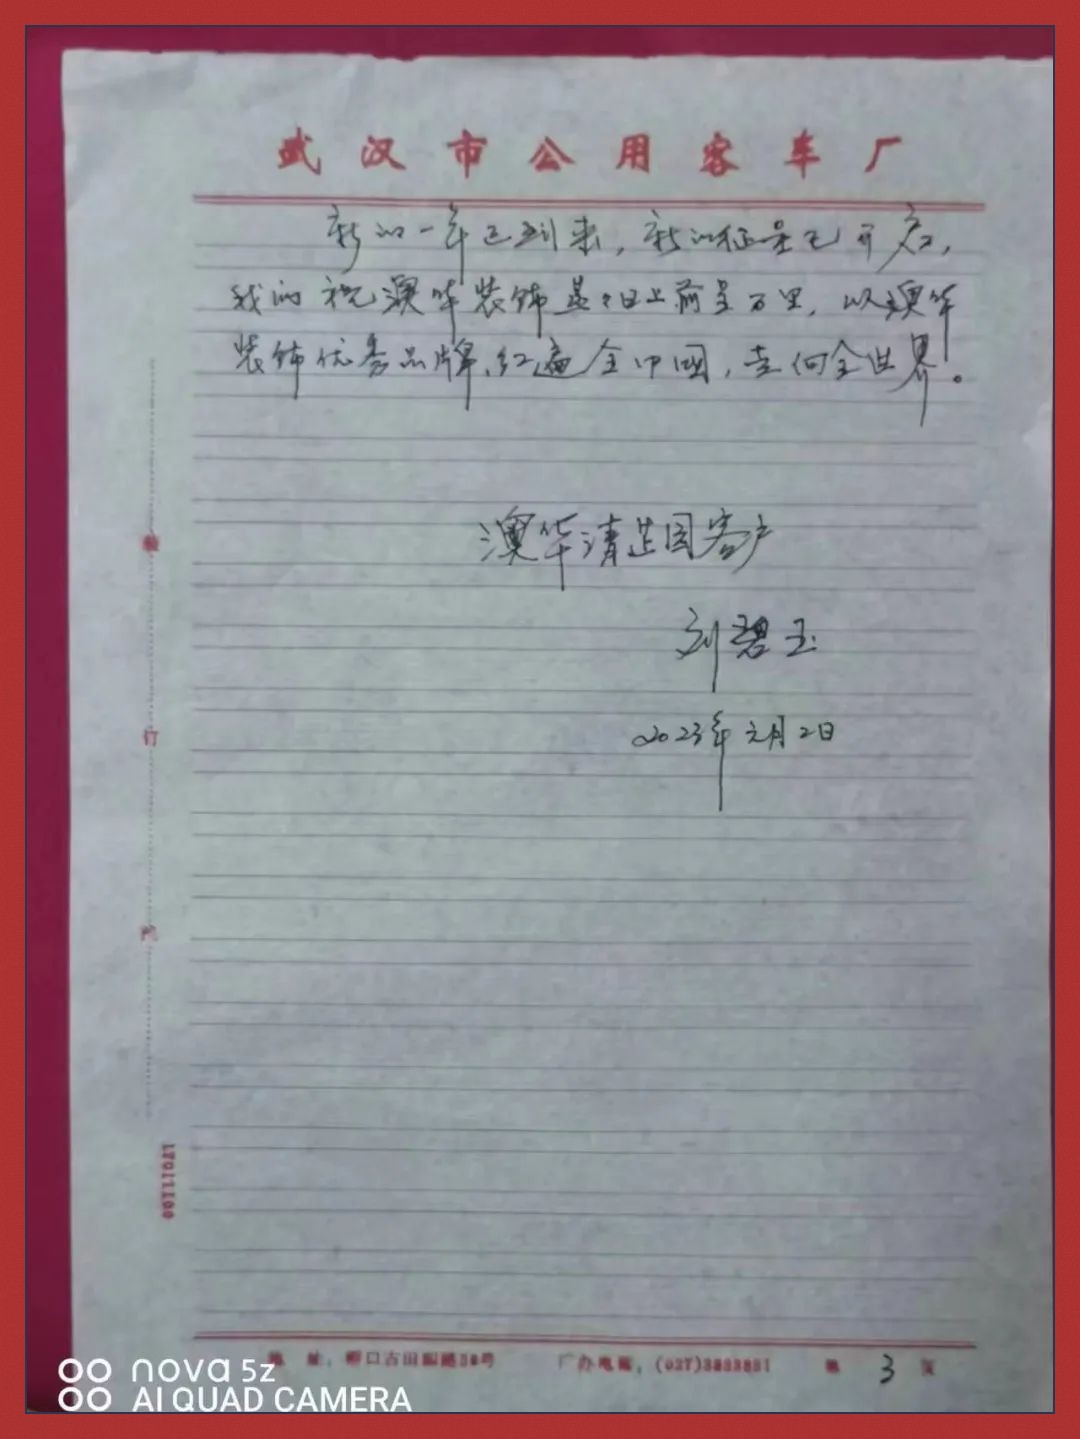 武汉市公用客车厂
新的一年已到来，新的征呈已开启，
我的祝澳华装饰蒸々日上前呈万里，以澳华
装饰优秀品牌，红遍全中国，走向全世界。
澳华清芷园客户
刘碧玉
2023年元月2日
装
订
线
地 址：桥口古田四路 号
厂办电话：(027)
第 3 页
nova 5z
AI QUAD CAMERA